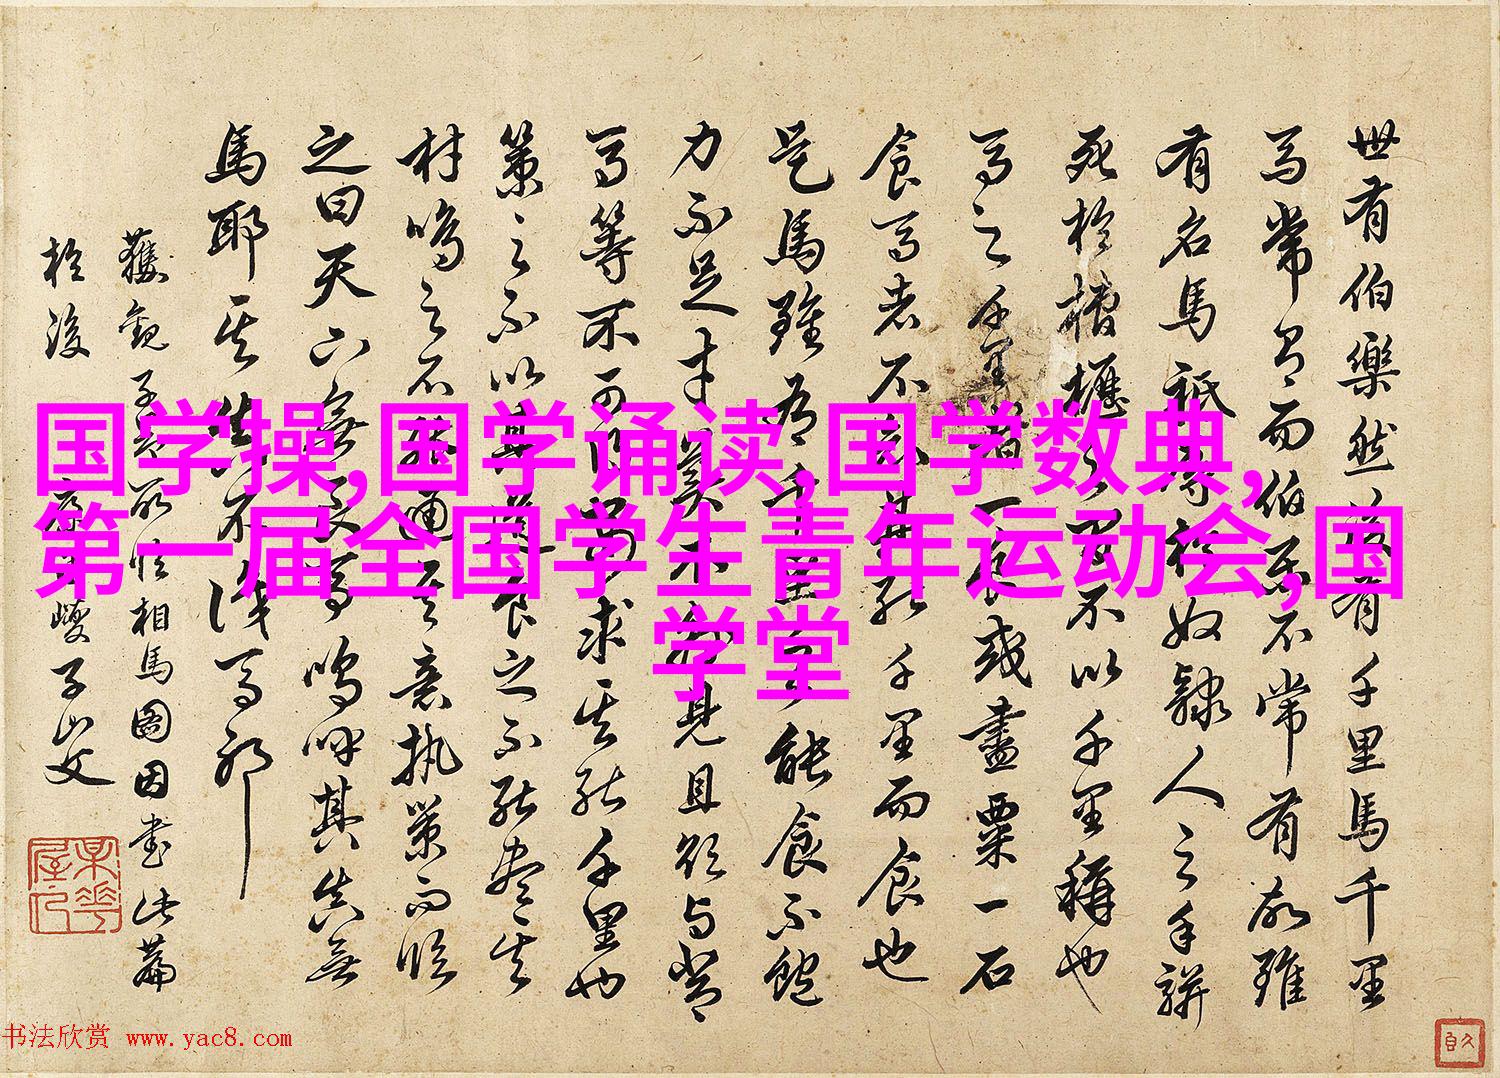 国学操,国学诵读,国学数典,
第一届全国学生青年运动会,国
学堂
世有伯樂然後有千里馬千里
馬常有而伯樂不常有故雖
有名馬祇辱於奴隸人之手駢
死於槽櫪之間不以千里稱也
馬之千里者一食或盡粟一石
食馬者不知其能千里而食也
是馬雖有千里之能食不飽
力不足才美不外見且欲與常
馬等不可得安求其能千里也
策之不以其道食之不能盡其
材鳴之不能通其意執策而臨
之曰天下無良馬嗚呼其真無
馬耶其真不識馬耶
獲觀子 相馬圖因書此篇
於後 康里巎子山父
书法欣赏 www.yac8.com